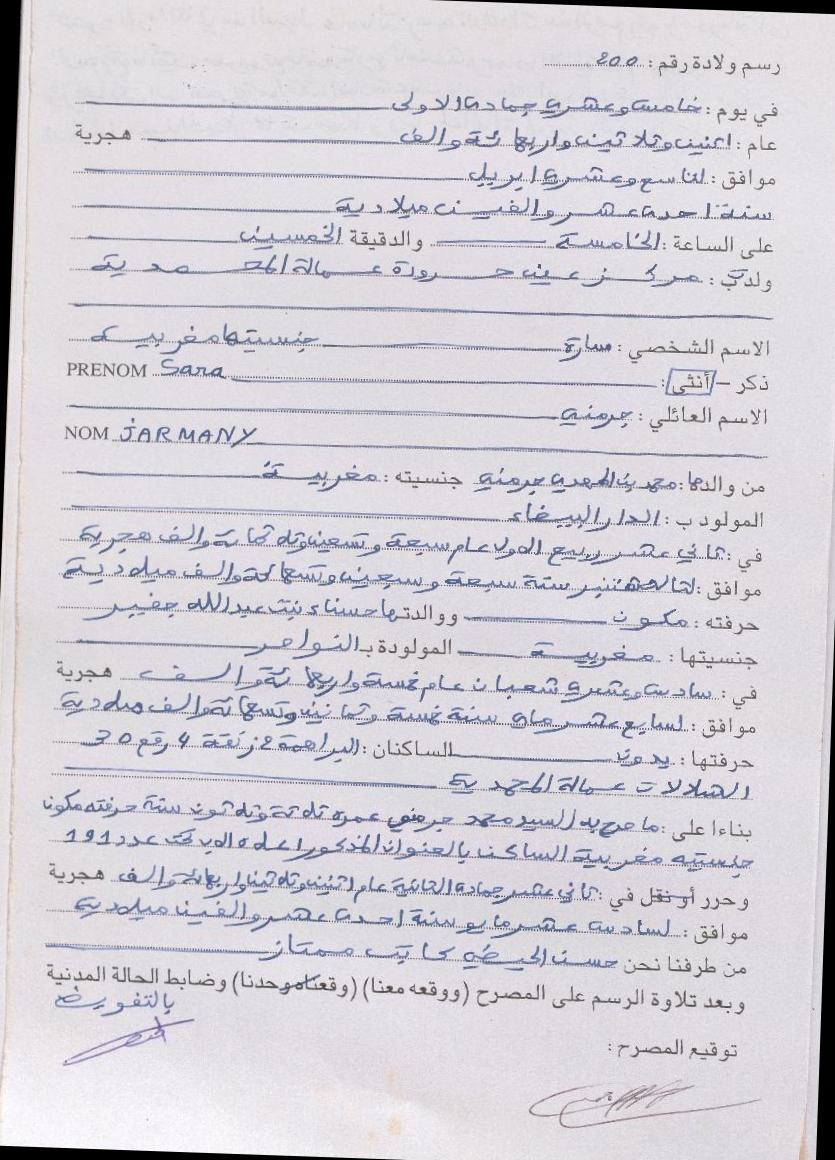 رسم ولادة رقم : 200
في يوم : خامس وعشري جمادى الاولى
عام : اثنين وثلاثين واربعمائة والف هجرية
موافق : لتاسع وعشري ابريل
سنة احدى عشر والفين ميلادية
على الساعة : الخامسة والدقيقة الخمسين
ولدت ب : مركز عين حرودة عمالة المحمدية
الاسم الشخصي : سارة جنسيتها مغربية
ذكر – أنثى : PRENOM Sara
الاسم العائلي : جرمني
NOM JARMANY
من والدها : محمد بن المهدي جرمني جنسيته : مغربية
المولود ب : الدار البيضاء
في : ثاني عشر ربيع الاول عام سبعة وتسعين وثلاثمائة والف هجرية
موافق : لثالث سنة سبعة وسبعين وتسعمائة والف ميلادية
حرفته : مكون ووالدتها حسناء بنت عبد الله جفير
جنسيتها : مغربية المولودة بـ النواصر
في : سادس وعشري شعبان عام خمسة واربعمائة والف هجرية
موافق : لسابع عشر ماي سنة خمسة وثمانين وتسعمائة والف ميلادية
حرفتها : بدون الساكنان : البراهمة 2 زنقة 4 رقم 30
الشلالات عمالة المحمدية
بناءا على : ما صرح به السيد محمد جرمني عمره ثلاثة وثلاثون سنة حرفته مكون
جنسيته مغربية الساكن بالعنوان المذكور اعلاه الاب تحت عدد 191
وحرر أو نقل في : ثاني عشر جمادى الثانية عام اثنين وثلاثين واربعمائة والف هجرية
موافق : لسادس عشر مايو سنة احدى عشر والفين ميلادية
من طرفنا نحن حسن الحيضي كاتب ممتاز
وبعد تلاوة الرسم على المصرح (ووقعه معنا) (وقعناه وحدنا) وضابط الحالة المدنية
بالتفويض
توقيع المصرح :